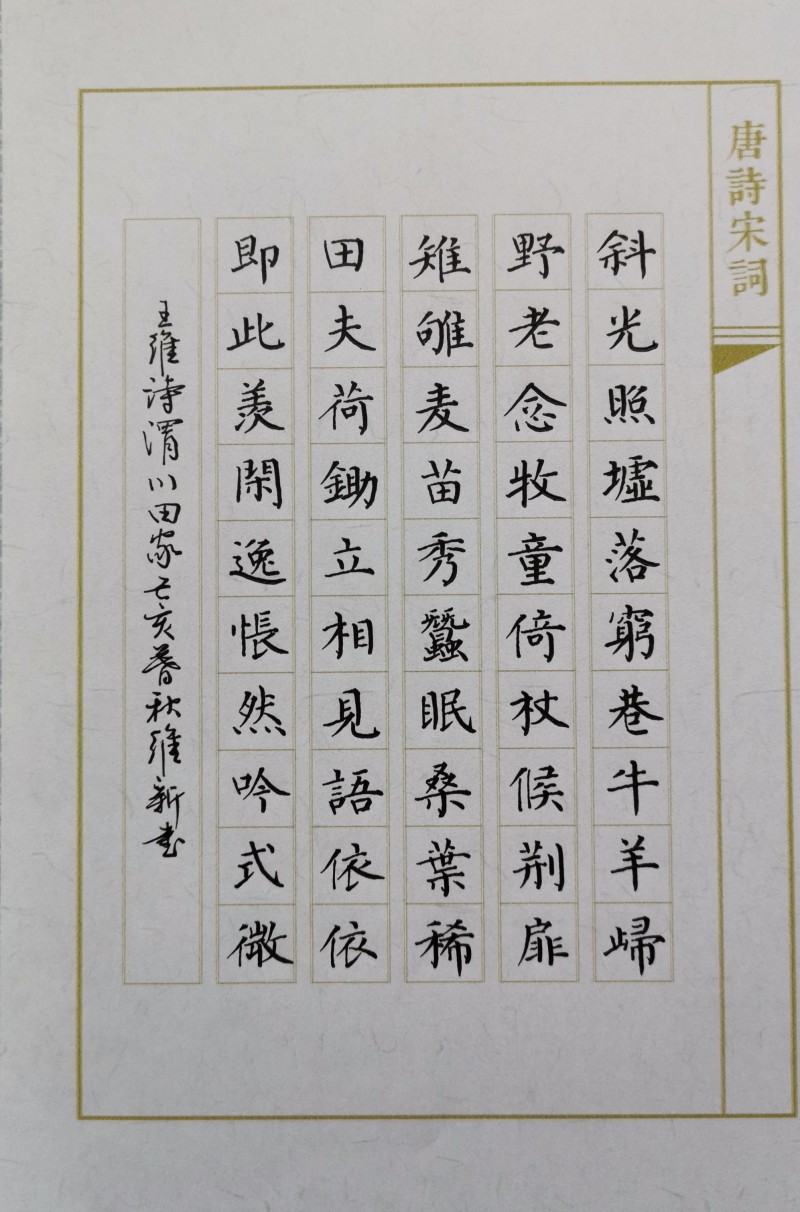 唐詩宋詞
斜光照墟落窮巷牛羊歸
野老念牧童倚杖候荆扉
雉雊麦苗秀蠶眠桑葉稀
田夫荷鋤立相見語依依
即此羨閑逸悵然吟式微
王維詩渭川田家己亥暮秋維新書